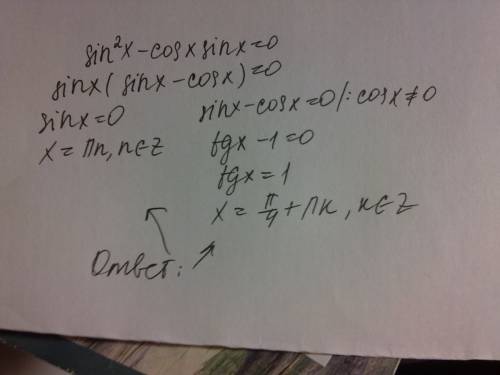 sin²x - cosx sinx = 0
sinx(sinx - cosx) = 0
sinx = 0
x = πn, n∈Z
sinx - cosx = 0 /: cosx ≠ 0
tgx - 1 = 0
tgx = 1
x = π/4 + πk, k∈Z
Ответ: